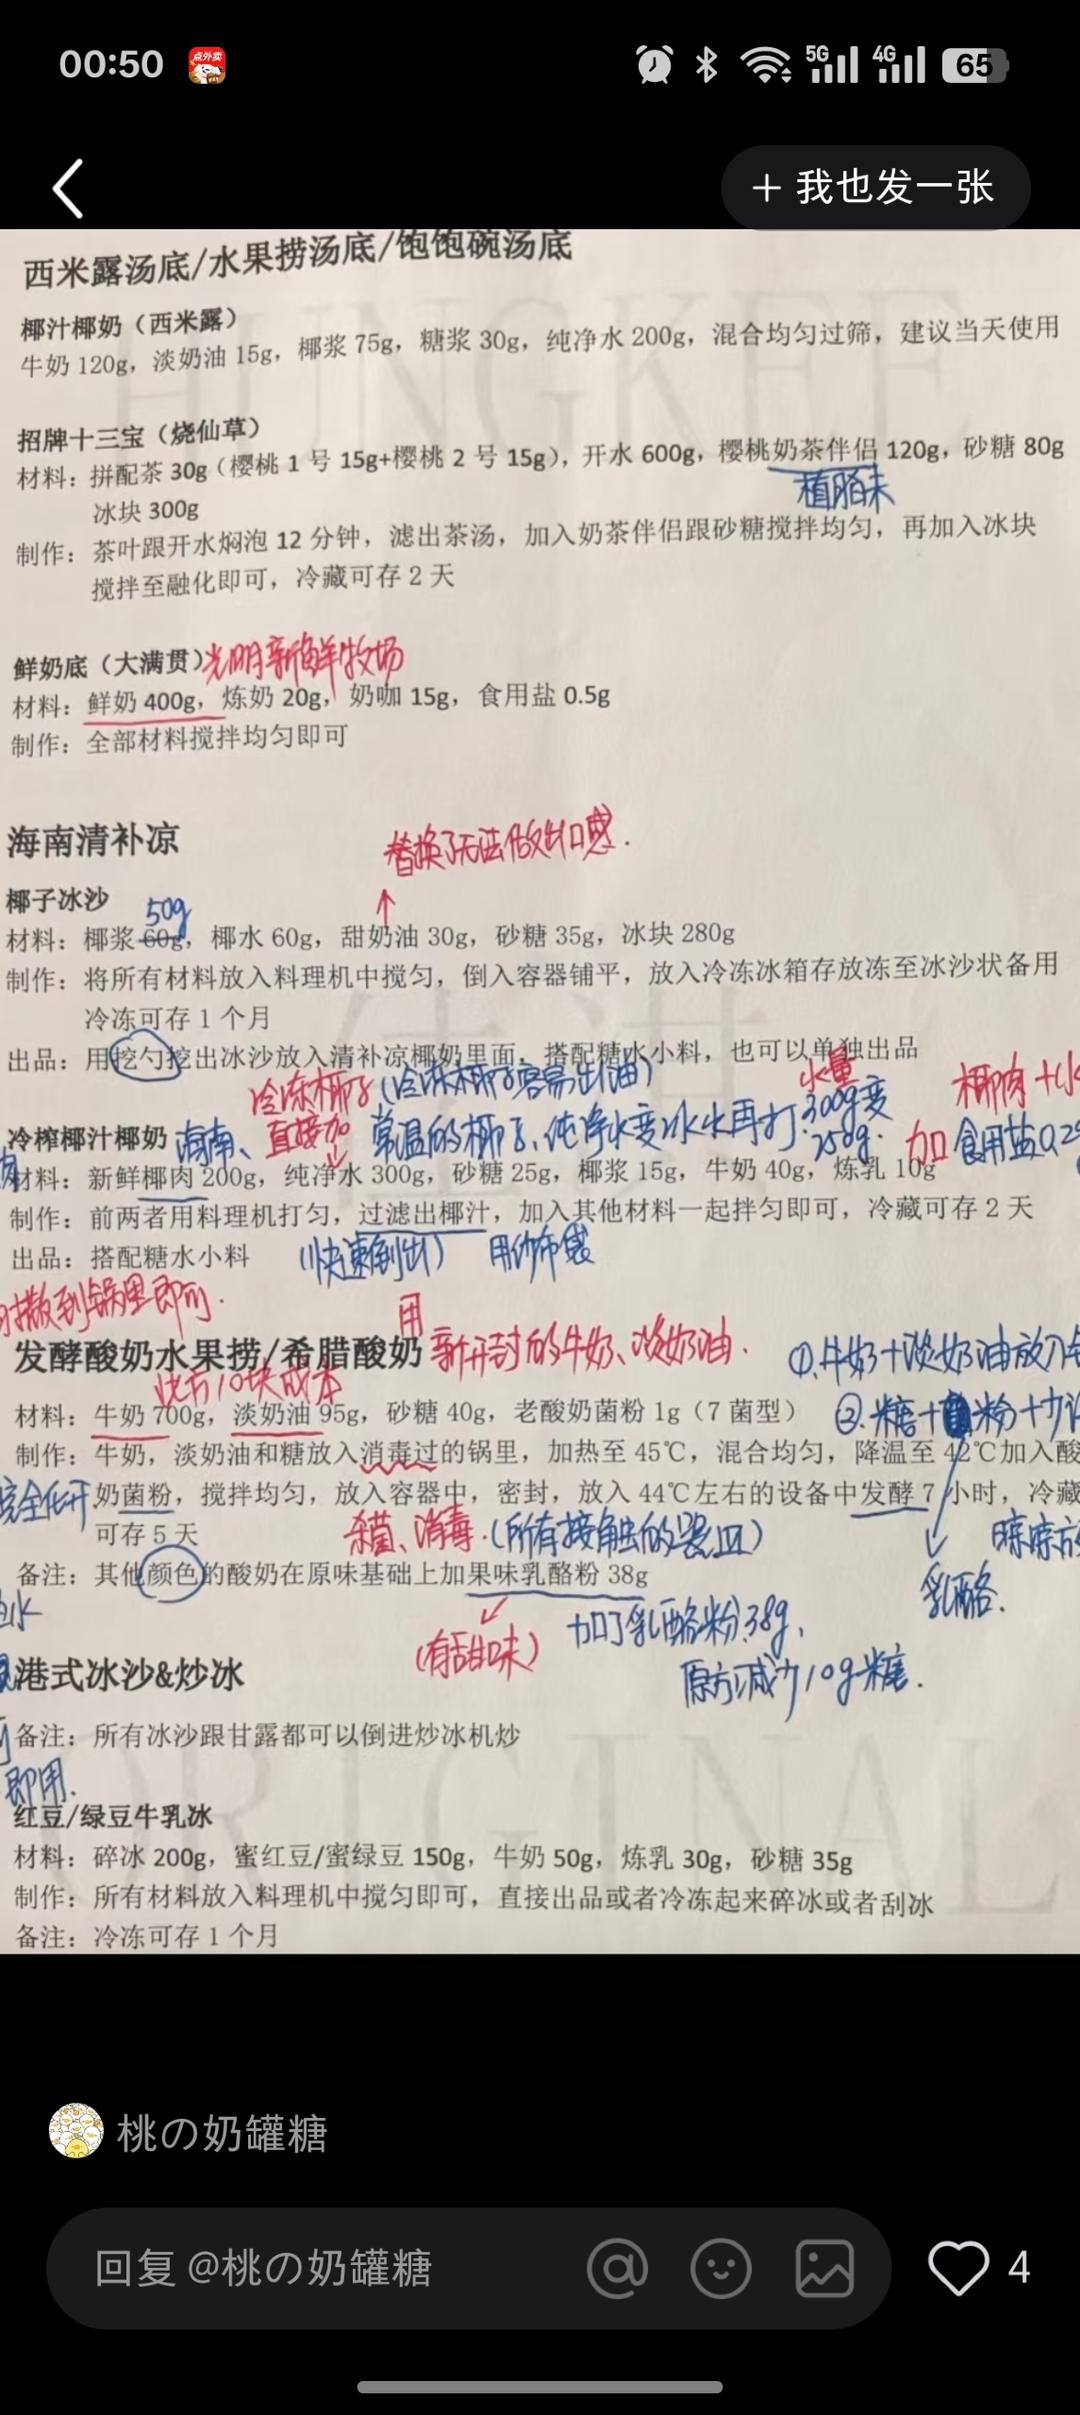 00:50
点外卖
5G
4G
65
+ 我也发一张
西米露汤底/水果捞汤底/饱饱碗汤底
椰汁椰奶（西米露）
牛奶 120g，淡奶油 15g，椰浆 75g，糖浆 30g，纯净水 200g，混合均匀过筛，建议当天使用
HUNGKEE
招牌十三宝（烧仙草）
材料：拼配茶 30g（樱桃 1 号 15g+樱桃 2 号 15g），开水 600g，樱桃奶茶伴侣 120g，砂糖 80g
植脂末
冰块 300g
制作：茶叶跟开水焖泡 12 分钟，滤出茶汤，加入奶茶伴侣跟砂糖搅拌均匀，再加入冰块
搅拌至融化即可，冷藏可存 2 天
鲜奶底（大满贯）光明新鲜牧场
材料：鲜奶 400g，炼奶 20g，奶咖 15g，食用盐 0.5g
制作：全部材料搅拌均匀即可
海南清补凉
替换了无法做出口感.
椰子冰沙
50g
材料：椰浆 60g，椰水 60g，甜奶油 30g，砂糖 35g，冰块 280g
制作：将所有材料放入料理机中搅匀，倒入容器铺平，放入冷冻冰箱存放冻至冰沙状备用
冷冻可存 1 个月
出品：用挖勺挖出冰沙放入清补凉椰奶里面，搭配糖水小料，也可以单独出品
冷冻椰子(冷冻椰子容易出油)
水量
椰肉+水
冷榨椰汁椰奶 海南、直接加 常温的椰子、纯净水变冰水再打.300g变250g. 加食用盐0.2g
材料：新鲜椰肉 200g，纯净水 300g，砂糖 25g，椰浆 15g，牛奶 40g，炼乳 10g
制作：前两者用料理机打匀，过滤出椰汁，加入其他材料一起拌匀即可，冷藏可存 2 天
出品：搭配糖水小料 (快速倒出) 用纱布袋
时撒到锅里即可.
发酵酸奶水果捞/希腊酸奶 用新开封的牛奶、淡奶油.
①.牛奶+淡奶油放入
此方10块成本
材料：牛奶 700g，淡奶油 95g，砂糖 40g，老酸奶菌粉 1g（7 菌型）
②.糖+粉+少
制作：牛奶，淡奶油和糖放入消毒过的锅里，加热至 45℃，混合均匀，降温至 42℃加入酸
完全化开
奶菌粉，搅拌均匀，放入容器中，密封，放入 44℃左右的设备中发酵 7 小时，冷藏
可存 5 天
杀菌、消毒.(所有接触的器皿)
备注：其他颜色的酸奶在原味基础上加果味乳酪粉 38g
乳酪.
(有甜味)
加了乳酪粉38g,
原方减少10g糖.
港式冰沙&炒冰
备注：所有冰沙跟甘露都可以倒进炒冰机炒
即用.
ORIGINAL
红豆/绿豆牛乳冰
材料：碎冰 200g，蜜红豆/蜜绿豆 150g，牛奶 50g，炼乳 30g，砂糖 35g
制作：所有材料放入料理机中搅匀即可，直接出品或者冷冻起来碎冰或者刮冰
备注：冷冻可存 1 个月
桃の奶罐糖
回复 @桃の奶罐糖
4